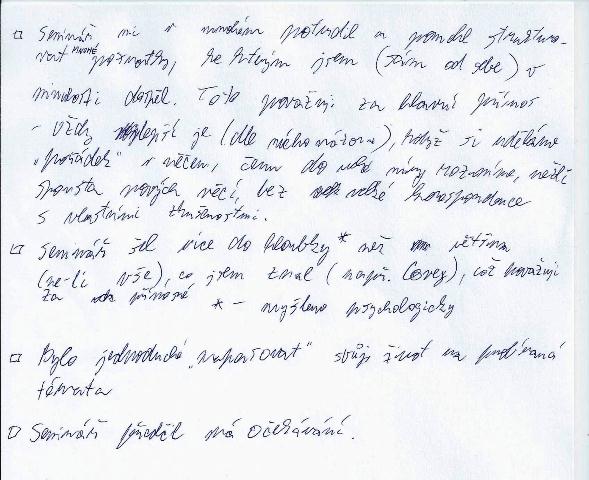 □ Seminář mi v mnohém potvrdil a pomohl strukturo-
vat mnohé poznatky, ke kterým jsem (sám od sebe) v
minulosti dospěl. Toto považuji za hlavní přínos
- vždy nejlepší je (dle mého názoru), když si uděláme
"pořádek" v něčem, čemu do jisté míry rozumíme, nežli
spousta nových věcí, bez velké korespondence
s vlastními zkušenostmi.
□ Seminář šel více do hloubky * než většina
(ne-li vše), co jsem znal (např. Covey), což považuji
za přínosné * - myšleno psychologicky
□ Bylo jednoduché "napasovat" svůj život na podívaná
témata
□ Seminář předčil má očekávání.